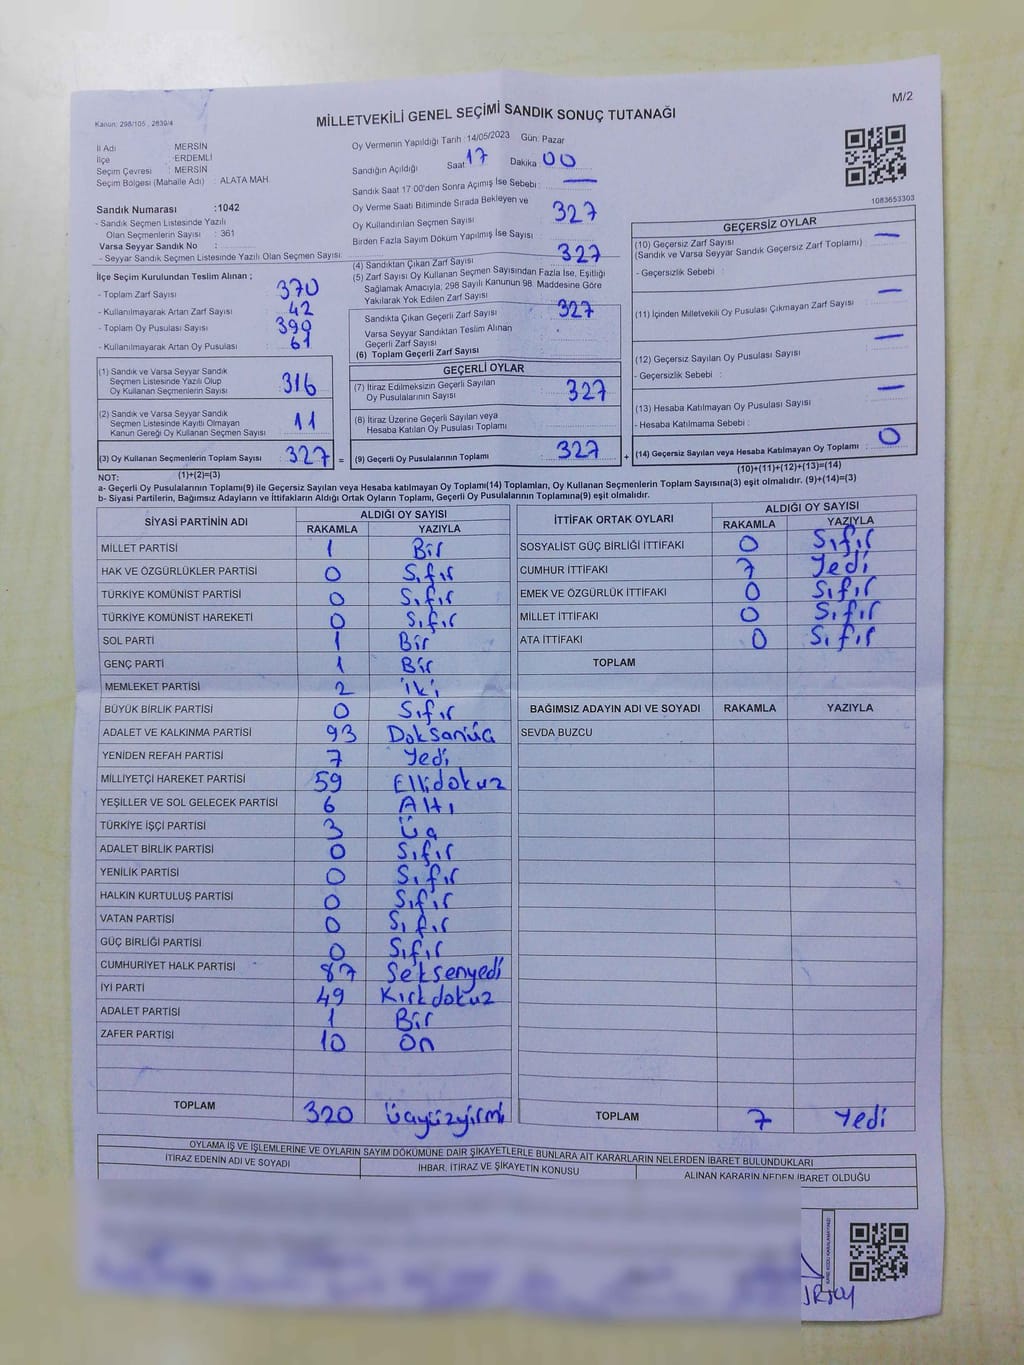 M/2
Kanun: 298/105 , 2839/4
MİLLETVEKİLİ GENEL SEÇİMİ SANDIK SONUÇ TUTANAĞI
İl Adı : MERSİN
İlçe : ERDEMLİ
Seçim Çevresi : MERSİN
Seçim Bölgesi (Mahalle Adı) : ALATA MAH.
Sandık Numarası :1042
- Sandık Seçmen Listesinde Yazılı
Olan Seçmenlerin Sayısı : 361
Varsa Seyyar Sandık No :
- Seyyar Sandık Seçmen Listesinde Yazılı Olan Seçmen Sayısı:
Oy Vermenin Yapıldığı Tarih : 14/05/2023 Gün: Pazar
Sandığın Açıldığı Saat 17 Dakika 00
Sandık Saat 17 00'den Sonra Açımış İse Sebebi : —
Oy Verme Saati Bitiminde Sırada Bekleyen ve
Oy Kullandırılan Seçmen Sayısı 327
Birden Fazla Sayım Döküm Yapılmış İse Sayısı :
1083653303
İlçe Seçim Kurulundan Teslim Alınan ;
- Toplam Zarf Sayısı 370
- Kullanılmayarak Artan Zarf Sayısı : 42
- Toplam Oy Pusulası Sayısı 390
- Kullanılmayarak Artan Oy Pusulası 61
(1) Sandık ve Varsa Seyyar Sandık
Seçmen Listesinde Yazılı Olup
Oy Kullanan Seçmenlerin Sayısı 316
(2) Sandık ve Varsa Seyyar Sandık
Seçmen Listesinde Kayıtlı Olmayan
Kanun Gereği Oy Kullanan Seçmen Sayısı 11
(3) Oy Kullanan Seçmenlerin Toplam Sayısı 327 =
(1)+(2)=(3)
(4) Sandıktan Çıkan Zarf Sayısı 327
(5) Zarf Sayısı Oy Kullanan Seçmen Sayısından Fazla İse, Eşitliği
Sağlamak Amacıyla; 298 Sayılı Kanunun 98. Maddesine Göre
Yakılarak Yok Edilen Zarf Sayısı
Sandıkta Çıkan Geçerli Zarf Sayısı 327
Varsa Seyyar Sandıktan Teslim Alınan
Geçerli Zarf Sayısı
(6) Toplam Geçerli Zarf Sayısı
GEÇERLİ OYLAR
(7) İtiraz Edilmeksizin Geçerli Sayılan
Oy Pusulalarının Sayısı 327
(8) İtiraz Üzerine Geçerli Sayılan veya
Hesaba Katılan Oy Pusulası Toplamı
(9) Geçerli Oy Pusulalarının Toplamı 327 +
GEÇERSİZ OYLAR
(10) Geçersiz Zarf Sayısı —
(Sandık ve Varsa Seyyar Sandık Geçersiz Zarf Toplamı)
- Geçersizlik Sebebi :
(11) İçinden Milletvekili Oy Pusulası Çıkmayan Zarf Sayısı —
(12) Geçersiz Sayılan Oy Pusulası Sayısı —
- Geçersizlik Sebebi :
(13) Hesaba Katılmayan Oy Pusulası Sayısı —
- Hesaba Katılmama Sebebi :
(14) Geçersiz Sayılan veya Hesaba Katılmayan Oy Toplamı : 0
(10)+(11)+(12)+(13)=(14)
NOT:
a- Geçerli Oy Pusulalarının Toplamı(9) ile Geçersiz Sayılan veya Hesaba katılmayan Oy Toplamı(14) Toplamları, Oy Kullanan Seçmenlerin Toplam Sayısına(3) eşit olmalıdır. (9)+(14)=(3)
b- Siyasi Partilerin, Bağımsız Adayların ve İttifakların Aldığı Ortak Oyların Toplamı, Geçerli Oy Pusulalarının Toplamına(9) eşit olmalıdır.
SİYASİ PARTİNİN ADI ALDIĞI OY SAYISI
RAKAMLA YAZIYLA
MİLLET PARTİSİ 1 Bir
HAK VE ÖZGÜRLÜKLER PARTİSİ 0 Sıfır
TÜRKİYE KOMÜNİST PARTİSİ 0 Sıfır
TÜRKİYE KOMÜNİST HAREKETİ 0 Sıfır
SOL PARTİ 1 Bir
GENÇ PARTİ 1 Bir
MEMLEKET PARTİSİ 2 iki
BÜYÜK BİRLİK PARTİSİ 0 Sıfır
ADALET VE KALKINMA PARTİSİ 93 Doksanüç
YENİDEN REFAH PARTİSİ 7 Yedi
MİLLİYETÇİ HAREKET PARTİSİ 59 Ellidokuz
YEŞİLLER VE SOL GELECEK PARTİSİ 6 Altı
TÜRKİYE İŞÇİ PARTİSİ 3 Üç
ADALET BİRLİK PARTİSİ 0 Sıfır
YENİLİK PARTİSİ 0 Sıfır
HALKIN KURTULUŞ PARTİSİ 0 Sıfır
VATAN PARTİSİ 0 Sıfır
GÜÇ BİRLİĞİ PARTİSİ 0 Sıfır
CUMHURİYET HALK PARTİSİ 87 Seksenyedi
İYİ PARTİ 49 Kırkdokuz
ADALET PARTİSİ 1 Bir
ZAFER PARTİSİ 10 On
TOPLAM 320 Üçyüzyirmi
İTTİFAK ORTAK OYLARI ALDIĞI OY SAYISI
RAKAMLA YAZIYLA
SOSYALİST GÜÇ BİRLİĞİ İTTİFAKI 0 Sıfır
CUMHUR İTTİFAKI 7 Yedi
EMEK VE ÖZGÜRLÜK İTTİFAKI 0 Sıfır
MİLLET İTTİFAKI 0 Sıfır
ATA İTTİFAKI 0 Sıfır
TOPLAM
BAĞIMSIZ ADAYIN ADI VE SOYADI RAKAMLA YAZIYLA
SEVDA BUZCU
TOPLAM 7 Yedi
OYLAMA İŞ VE İŞLEMLERİNE VE OYLARIN SAYIM DÖKÜMÜNE DAİR ŞİKAYETLERLE BUNLARA AİT KARARLARIN NELERDEN İBARET BULUNDUKLARI
İTİRAZ EDENİN ADI VE SOYADI İHBAR, İTİRAZ VE ŞİKAYETİN KONUSU ALINAN KARARIN NEDEN İBARET OLDUĞU